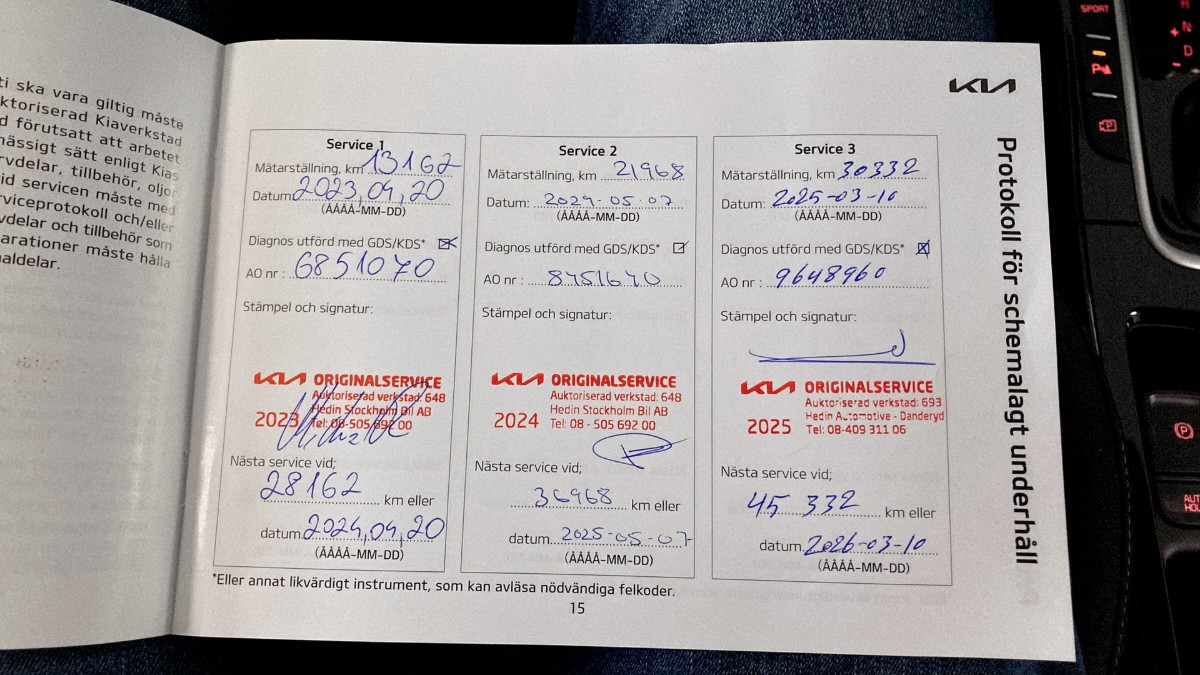 ti ska vara giltig måste
ktoriserad Kiaverkstad
d förutsatt att arbetet
mässigt sätt enligt Kias
rvdelar, tillbehör, oljor
id servicen måste med
rviceprotokoll och/eller
vdelar och tillbehör som
arationer måste hålla
aldelar.
KIA
Protokoll för schemalagt underhåll
Service 1
Mätarställning, km 13162
Datum 2023,04,20
(ÅÅÅÅ-MM-DD)
Diagnos utförd med GDS/KDS*
AO nr : 6851070
Stämpel och signatur:
KIA ORIGINALSERVICE
Auktoriserad verkstad: 648
Hedin Stockholm Bil AB
2023 Tel: 08-505 692 00
Nästa service vid;
28162 km eller
datum 2024,04,20
(ÅÅÅÅ-MM-DD)
Service 2
Mätarställning, km 21968
Datum: 2024-05-07
(ÅÅÅÅ-MM-DD)
Diagnos utförd med GDS/KDS*
AO nr : 8451670
Stämpel och signatur:
KIA ORIGINALSERVICE
Auktoriserad verkstad: 648
Hedin Stockholm Bil AB
2024 Tel: 08 - 505 692 00
Nästa service vid;
36968 km eller
datum 2025-05-07
(ÅÅÅÅ-MM-DD)
Service 3
Mätarställning, km 30332
Datum: 2025-03-10
(ÅÅÅÅ-MM-DD)
Diagnos utförd med GDS/KDS*
AO nr : 9648960
Stämpel och signatur:
KIA ORIGINALSERVICE
Auktoriserad verkstad: 693
Hedin Automotive - Danderyd
2025 Tel: 08-409 311 06
Nästa service vid;
45 332 km eller
datum 2026-03-10
(ÅÅÅÅ-MM-DD)
*Eller annat likvärdigt instrument, som kan avläsa nödvändiga felkoder.
15
SPORT
R
N
D
P
AUT
HOL